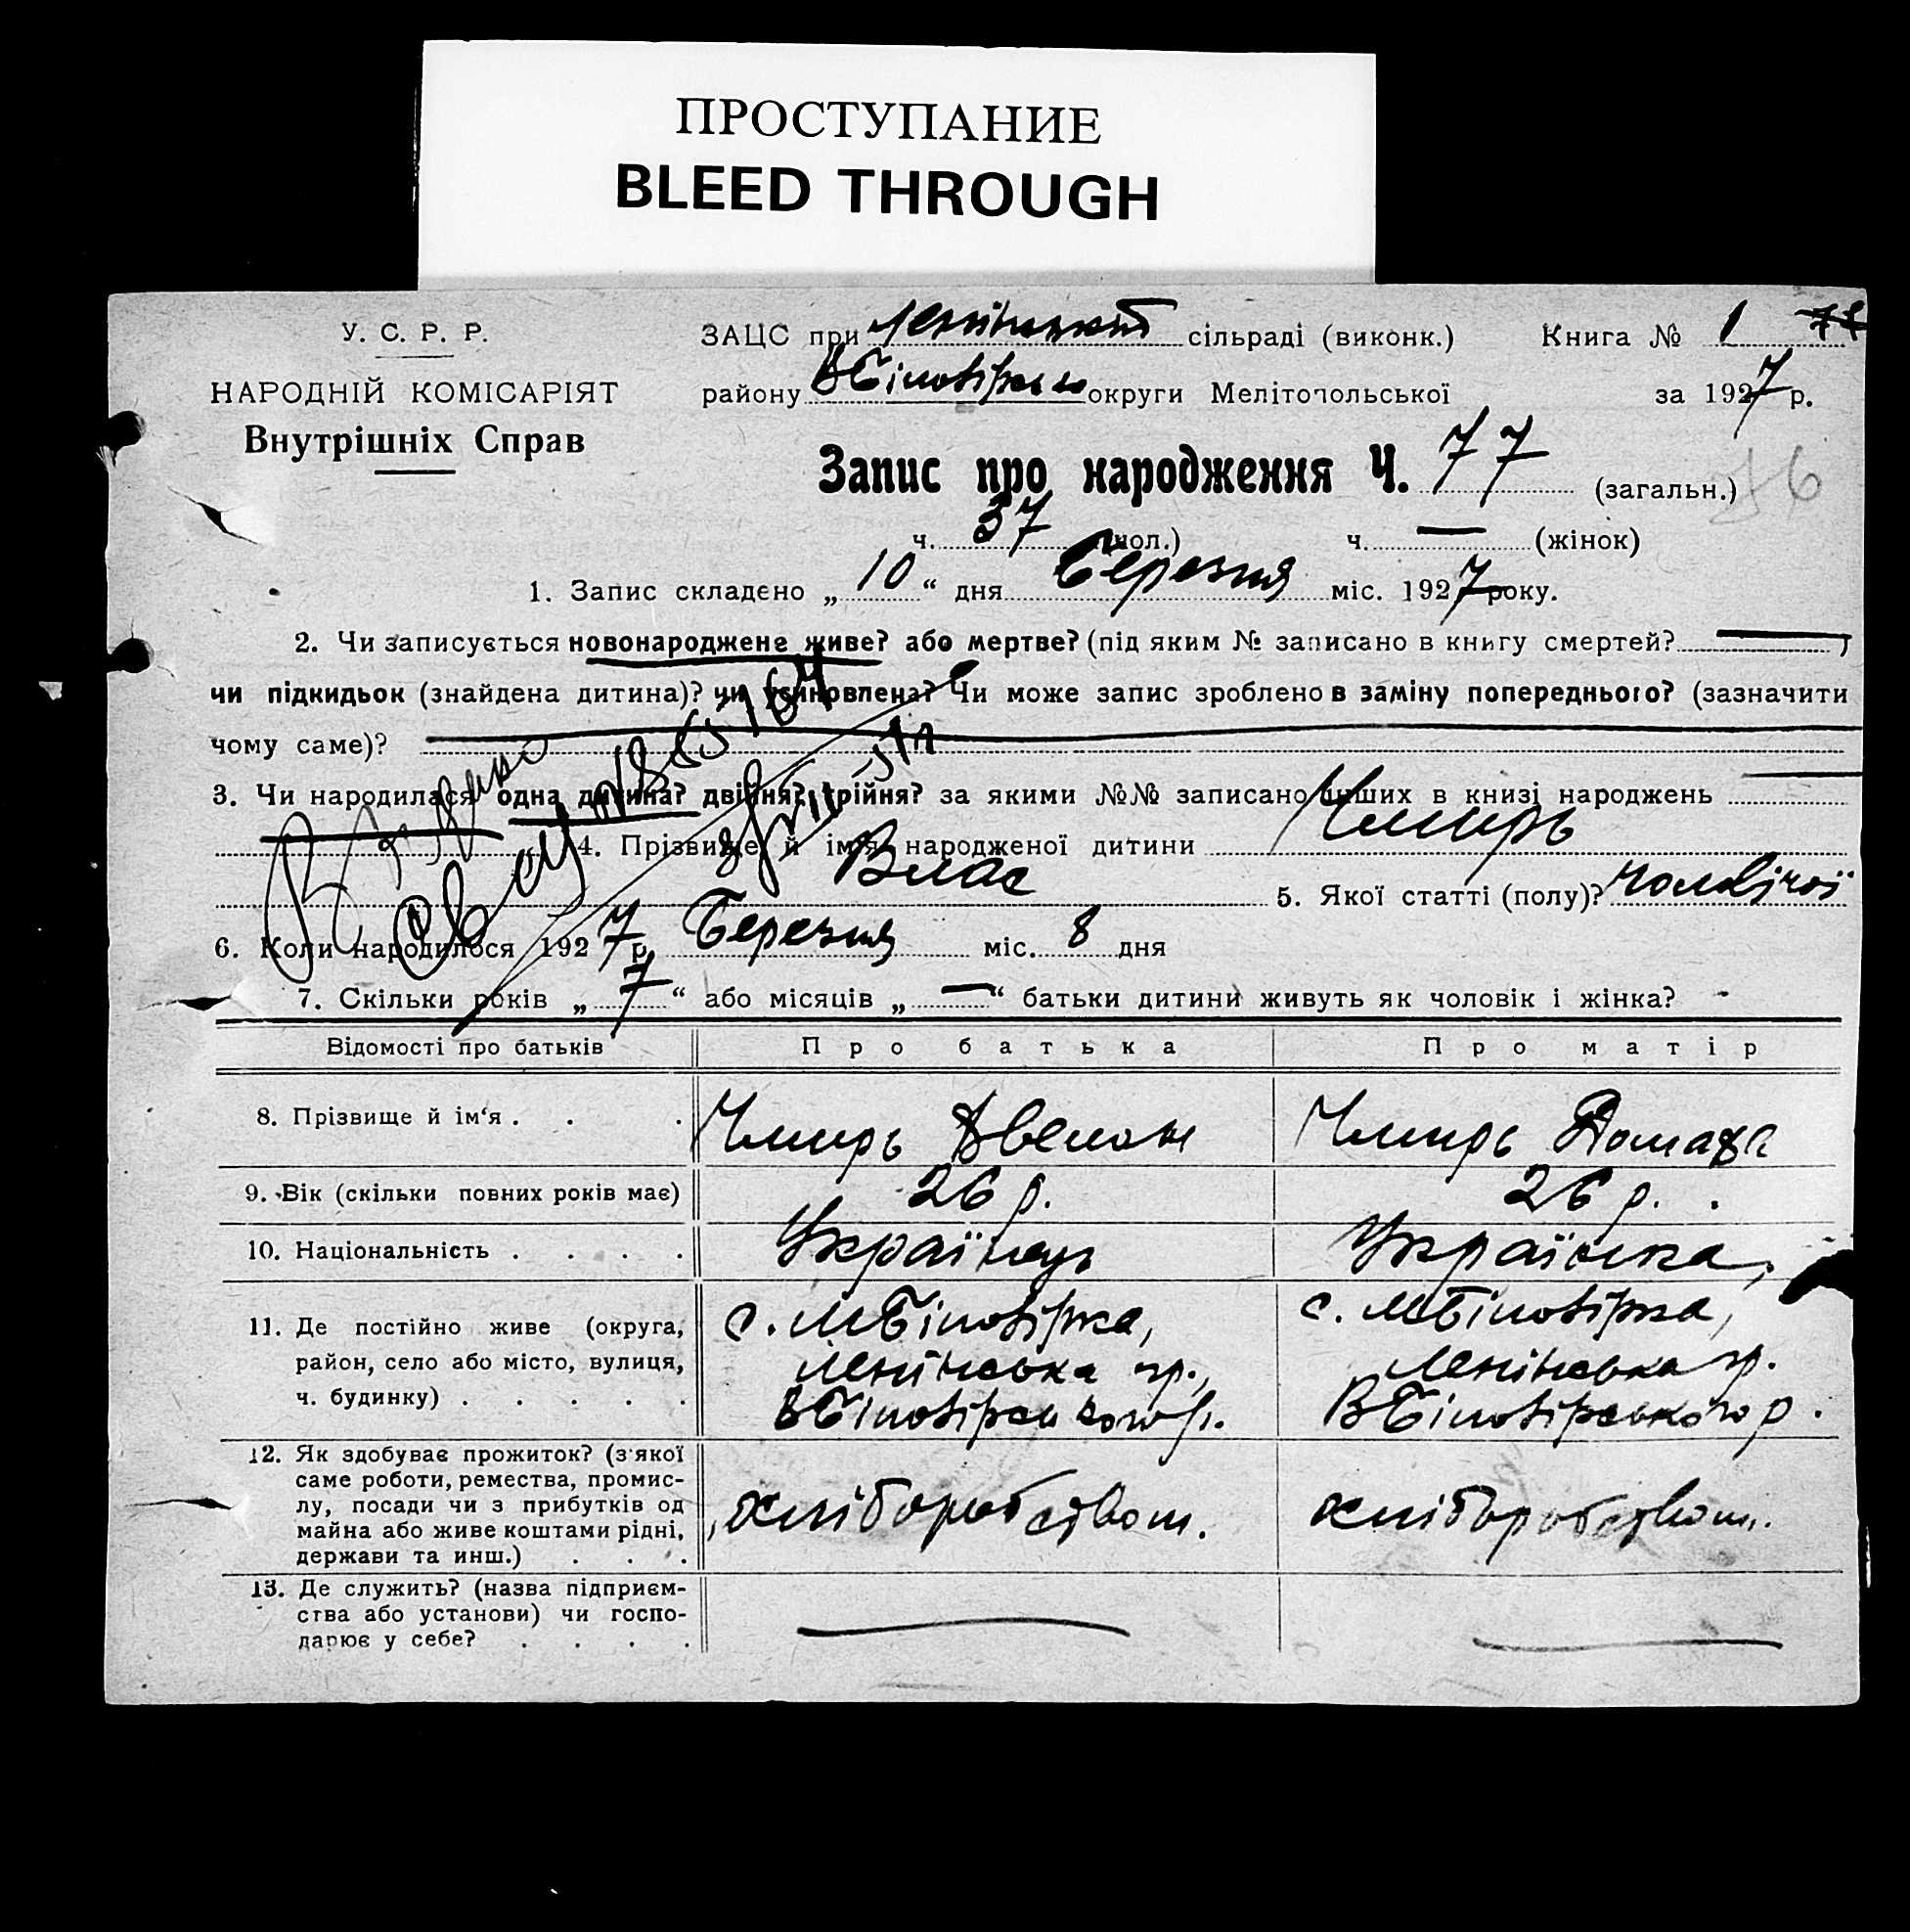 ПРОСТУПАНИЕ
BLEED THROUGH
У. С. Р. Р.
НАРОДНІЙ КОМІСАРІЯТ
Внутрішніх Справ
ЗАЦС при Ленінській сільраді (виконк.) Книга № 1
району ВБілозірськ округи Мелітопольської за 1927 р.
Запис про народження Ч. 77 (загальн.) 76
ч. 37 (чол.) ч. — (жінок)
1. Запис складено „ 10 “ дня Березня міс. 1927 року.
2. Чи записується новонароджене живе? або мертве? (під яким № записано в книгу смертей?
чи підкидьок (знайдена дитина)? чи усиновлена? Чи може запис зроблено в заміну попереднього? (зазначити
чому саме)?
3. Чи народилася одна дитина? двійня? трійня? за якими №№ записано інших в книзі народжень
4. Прізвище й ім'я народженої дитини Чмирь
Влас 5. Якої статті (полу)? чоловічої
6. Коли народилося 1927 р. Березня міс. 8 дня
7. Скільки років „ 7 “ або місяців „ — “ батьки дитини живуть як чоловік і жінка?
Відомості про батьків Про батька Про матір
8. Прізвище й ім‘я . . . Чмирь Чмирь Домаха
9. Вік (скільки повних років має) 26 р. 26 р.
10. Національність . . . . Українец Українка,
11. Де постійно живе (округа,
район, село або місто, вулиця,
ч. будинку) . . . . .
с. МБілозірка,
Ленінська
ВБілозірського р.
с. МБілозірка,
Ленінська
ВБілозірського р.
12. Як здобуває прожиток? (з якої
саме роботи, ремества, промис-
лу, посади чи з прибутків од
майна або живе коштами рідні,
держави та инш.) . . .
хліборобством. хліборобством.
13. Де служить? (назва підприєм-
ства або установи) чи госпо-
дарює у себе? . . . .